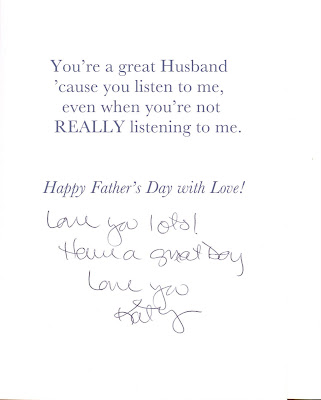 You're a great Husband
'cause you listen to me,
even when you're not
REALLY listening to me.
Happy Father's Day with Love!
Love you lots!
Have a great Day
Love you
Katy